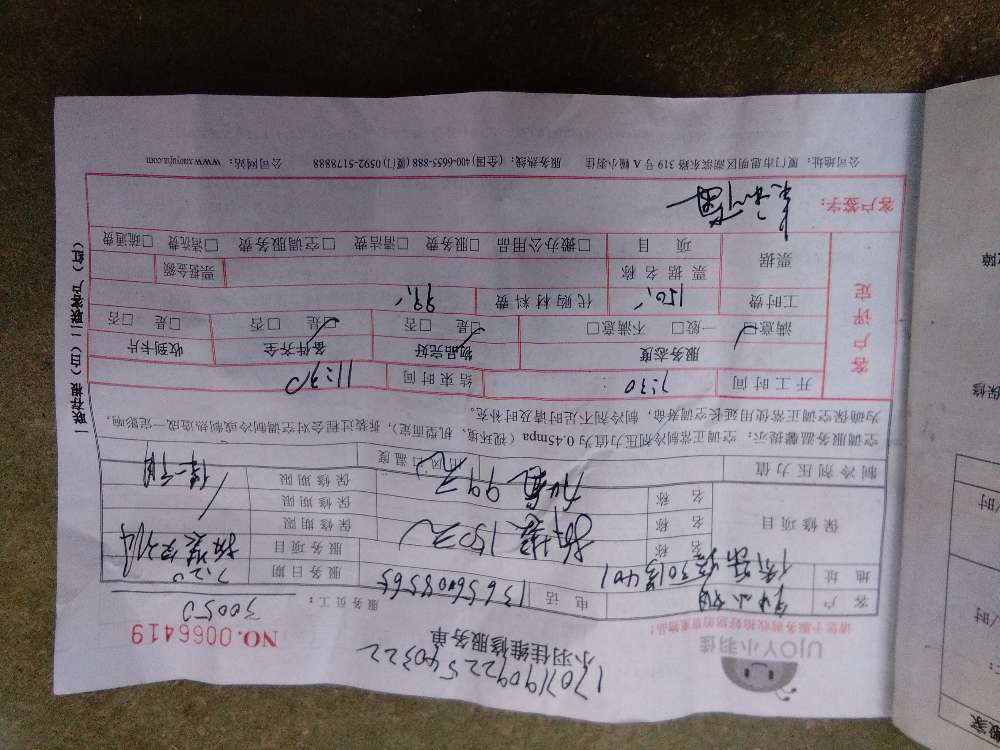 1707190922540322
UJOY小羽佳
小羽佳维修服务单
NO.0066419
请您于服务前收拾好您的贵重物品!
服务员工: 30050
客户
电话 13656008565
服务日期 7.20
地址
服务项目
保修项目
名称
保修期限
名称
保修期限
名称
保修期限
150元
加氟 99元
制冷剂压力值
出风口温度
空调服务温馨提示: 空调正常制冷剂压力值为0.45mpa (视环境、机型而定), 拆装过程会对空调制冷或制热造成一定影响,
为确保空调正常使用延长空调寿命, 制冷剂不足时请及时补充。
客户评定
开工时间 7:30
结束时间 11:30
服务态度
物品完好
备件齐全
收到卡片
满意☑ 一般☐ 不满意☐
☑是 ☐否
☑是 ☐否
☐是 ☐否
工时费 150.-
代购材料费 99.-
票据
票据名称
票据金额
项目
☐搬办公用品 ☐服务费 ☐清洁费 ☐空调服务费 ☐清洗费 ☐疏通费
客户签字:
公司地址: 厦门市思明区湖滨东路319号A幢小羽佳
服务热线: (全国)400-6655-888 (厦门)0592-5178888
公司网站: www.xiaoyujia.com
一联存根 (白) 二联客户 (红)